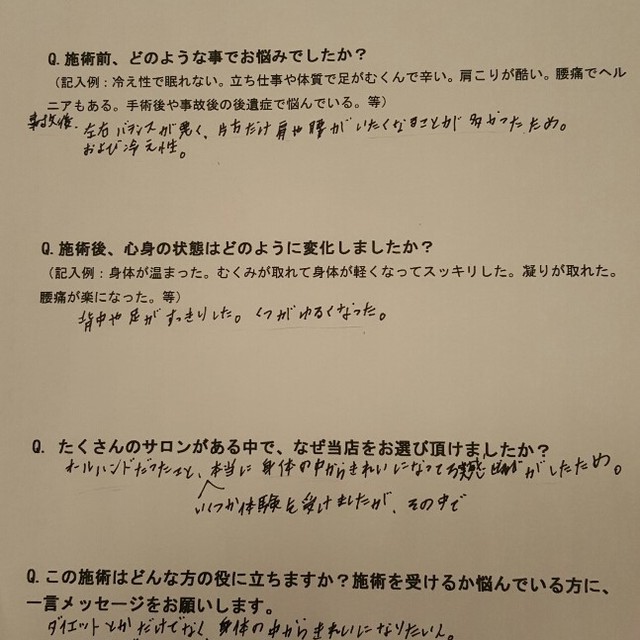 Q. 施術前、どのような事でお悩みでしたか？
（記入例：冷え性で眠れない。立ち仕事や体質で足がむくんで辛い。肩こりが酷い。腰痛でヘル
ニアもある。手術後や事故後の後遺症で悩んでいる。等）
事故後、左右バランスが悪く、片方だけ肩や腰がいたくなることが多かったため。
および冷え性。
Q. 施術後、心身の状態はどのように変化しましたか？
（記入例：身体が温まった。むくみが取れて身体が軽くなってスッキリした。凝りが取れた。
腰痛が楽になった。等）
背中や足がすっきりした。くつがゆるくなった。
Q. たくさんのサロンがある中で、なぜ当店をお選び頂けましたか？
オールハンドだったこと、本当に身体の中からきれいになってる実感がしたため。
いくつか体験を受けましたが、その中で
Q. この施術はどんな方の役に立ちますか？施術を受けるか悩んでいる方に、
一言メッセージをお願いします。
ダイエットとかだけでなく身体の中からきれいになりたい人。